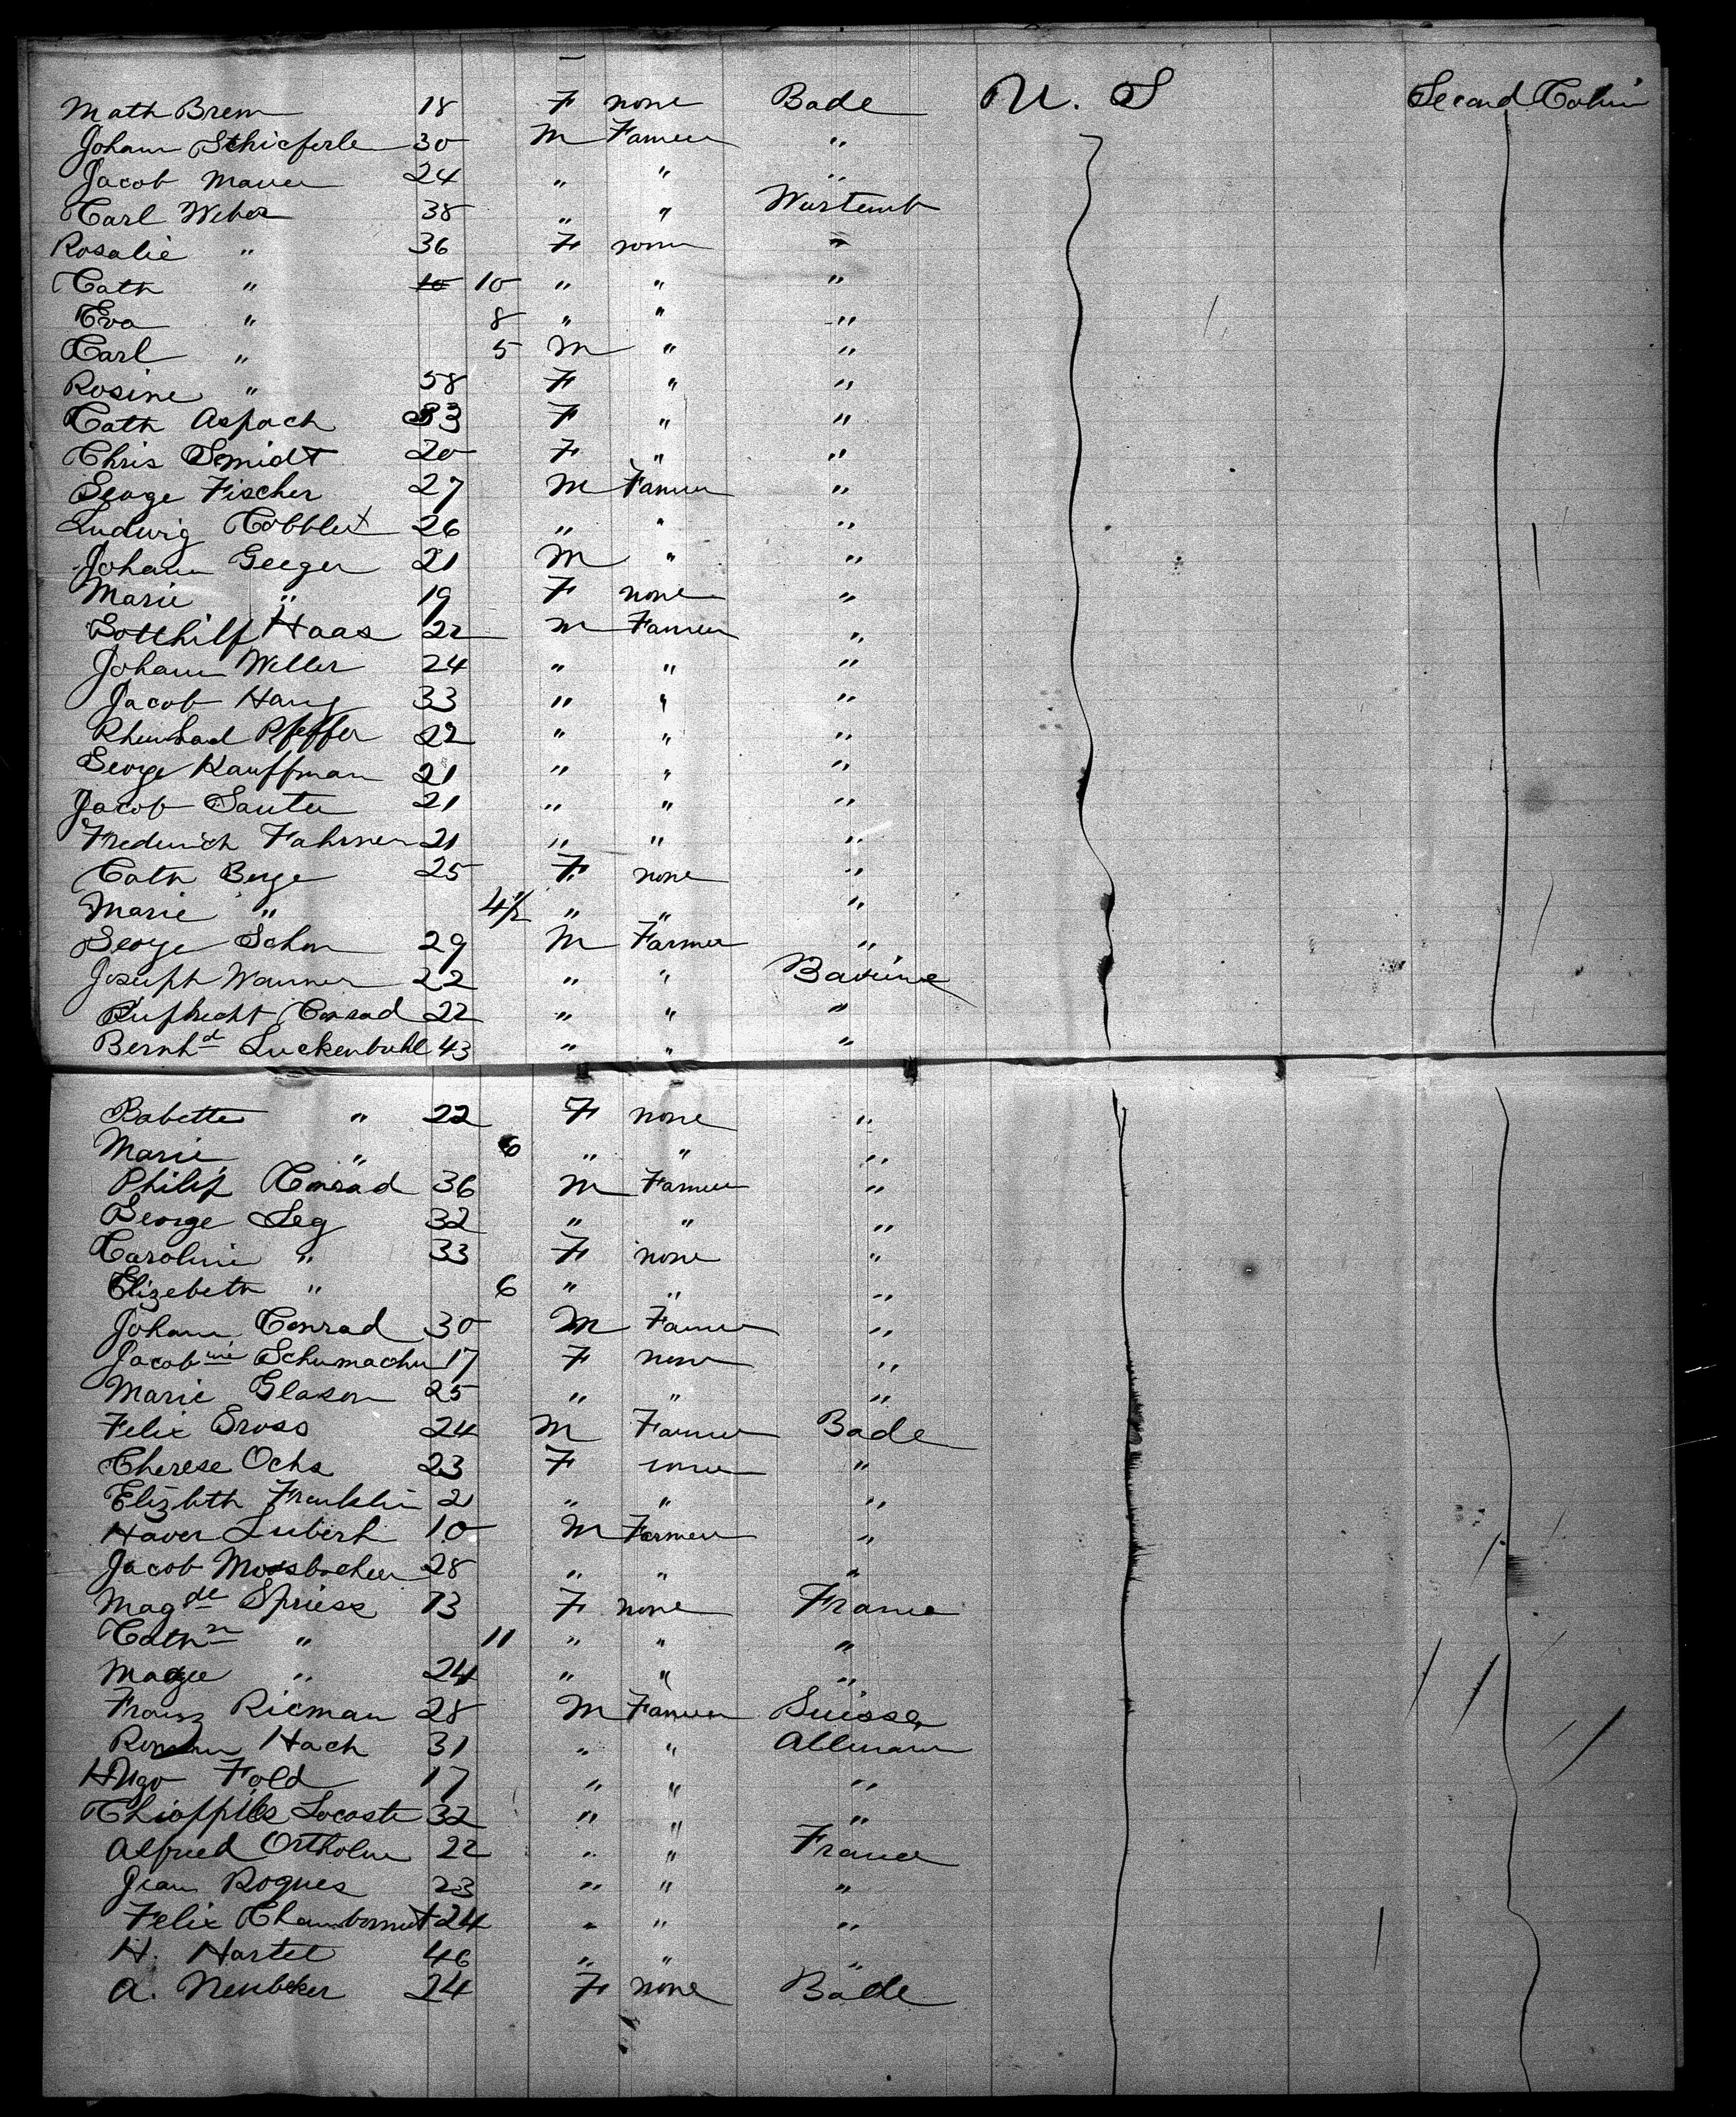 Math Brem 18 F none Bade U. S Second Cabin
Johann Schieferle 30 M Farmer "
Jacob Maurer 24 " " "
Carl Weber 38 " " Wurtemb
Rosalie " 36 F none "
Cath " 10 10 " " "
Eva " 8 " " "
Carl " 5 M " "
Rosine " 58 F " "
Cath Aspach 33 F " "
Chris Smidt 20 F " "
George Fischer 27 M Farmer "
Ludwig 26 " " "
Johann Geeger 21 M " "
Marie " 19 F none "
Gotthilf Haas 22 M Farmer "
Johann Weller 24 " " "
Jacob Haug 33 " " "
Pfeffer 22 " " "
George Kauffman 21 " " "
Jacob Sauter 21 " " "
Frederich Fahrner 21 " " "
Cath Berge 25 F none "
Marie " 4 1/2 " " "
George Sohn 29 M Farmer "
Joseph Wanner 22 " " Baviere
Ruprecht Conrad 22 " " "
Bernhd Luckenbuhl 43 " " "
Babette " 22 F none "
Marie " 6 " " "
Philip Conrad 36 M Farmer "
George Leg 32 " " "
Caroline " 33 F none "
Elizebeth " 6 " " "
Johann Conrad 30 M Farmer "
Jacobine Schumacher 17 F none "
Marie Glason 25 " " "
Felix Gross 24 M Farmer Bade
Therese Ochs 23 F none "
Elizbeth Franklin 21 " " "
Xaver 10 M Farmer "
Jacob Mossbacher 28 " " "
Magde Spriess 13 F none France
Cathn " 11 " " "
" 24 " " "
Franz Rieman 28 M Farmer Suisse
Hach 31 " " Allmann
Hugo Fold 17 " " "
Locaste 32 " " "
Alfred 22 " " France
Jean Rogues 23 " " "
Felix 24 " " "
H. Hartel 46 " " "
A. Neubeker 24 F none Bade